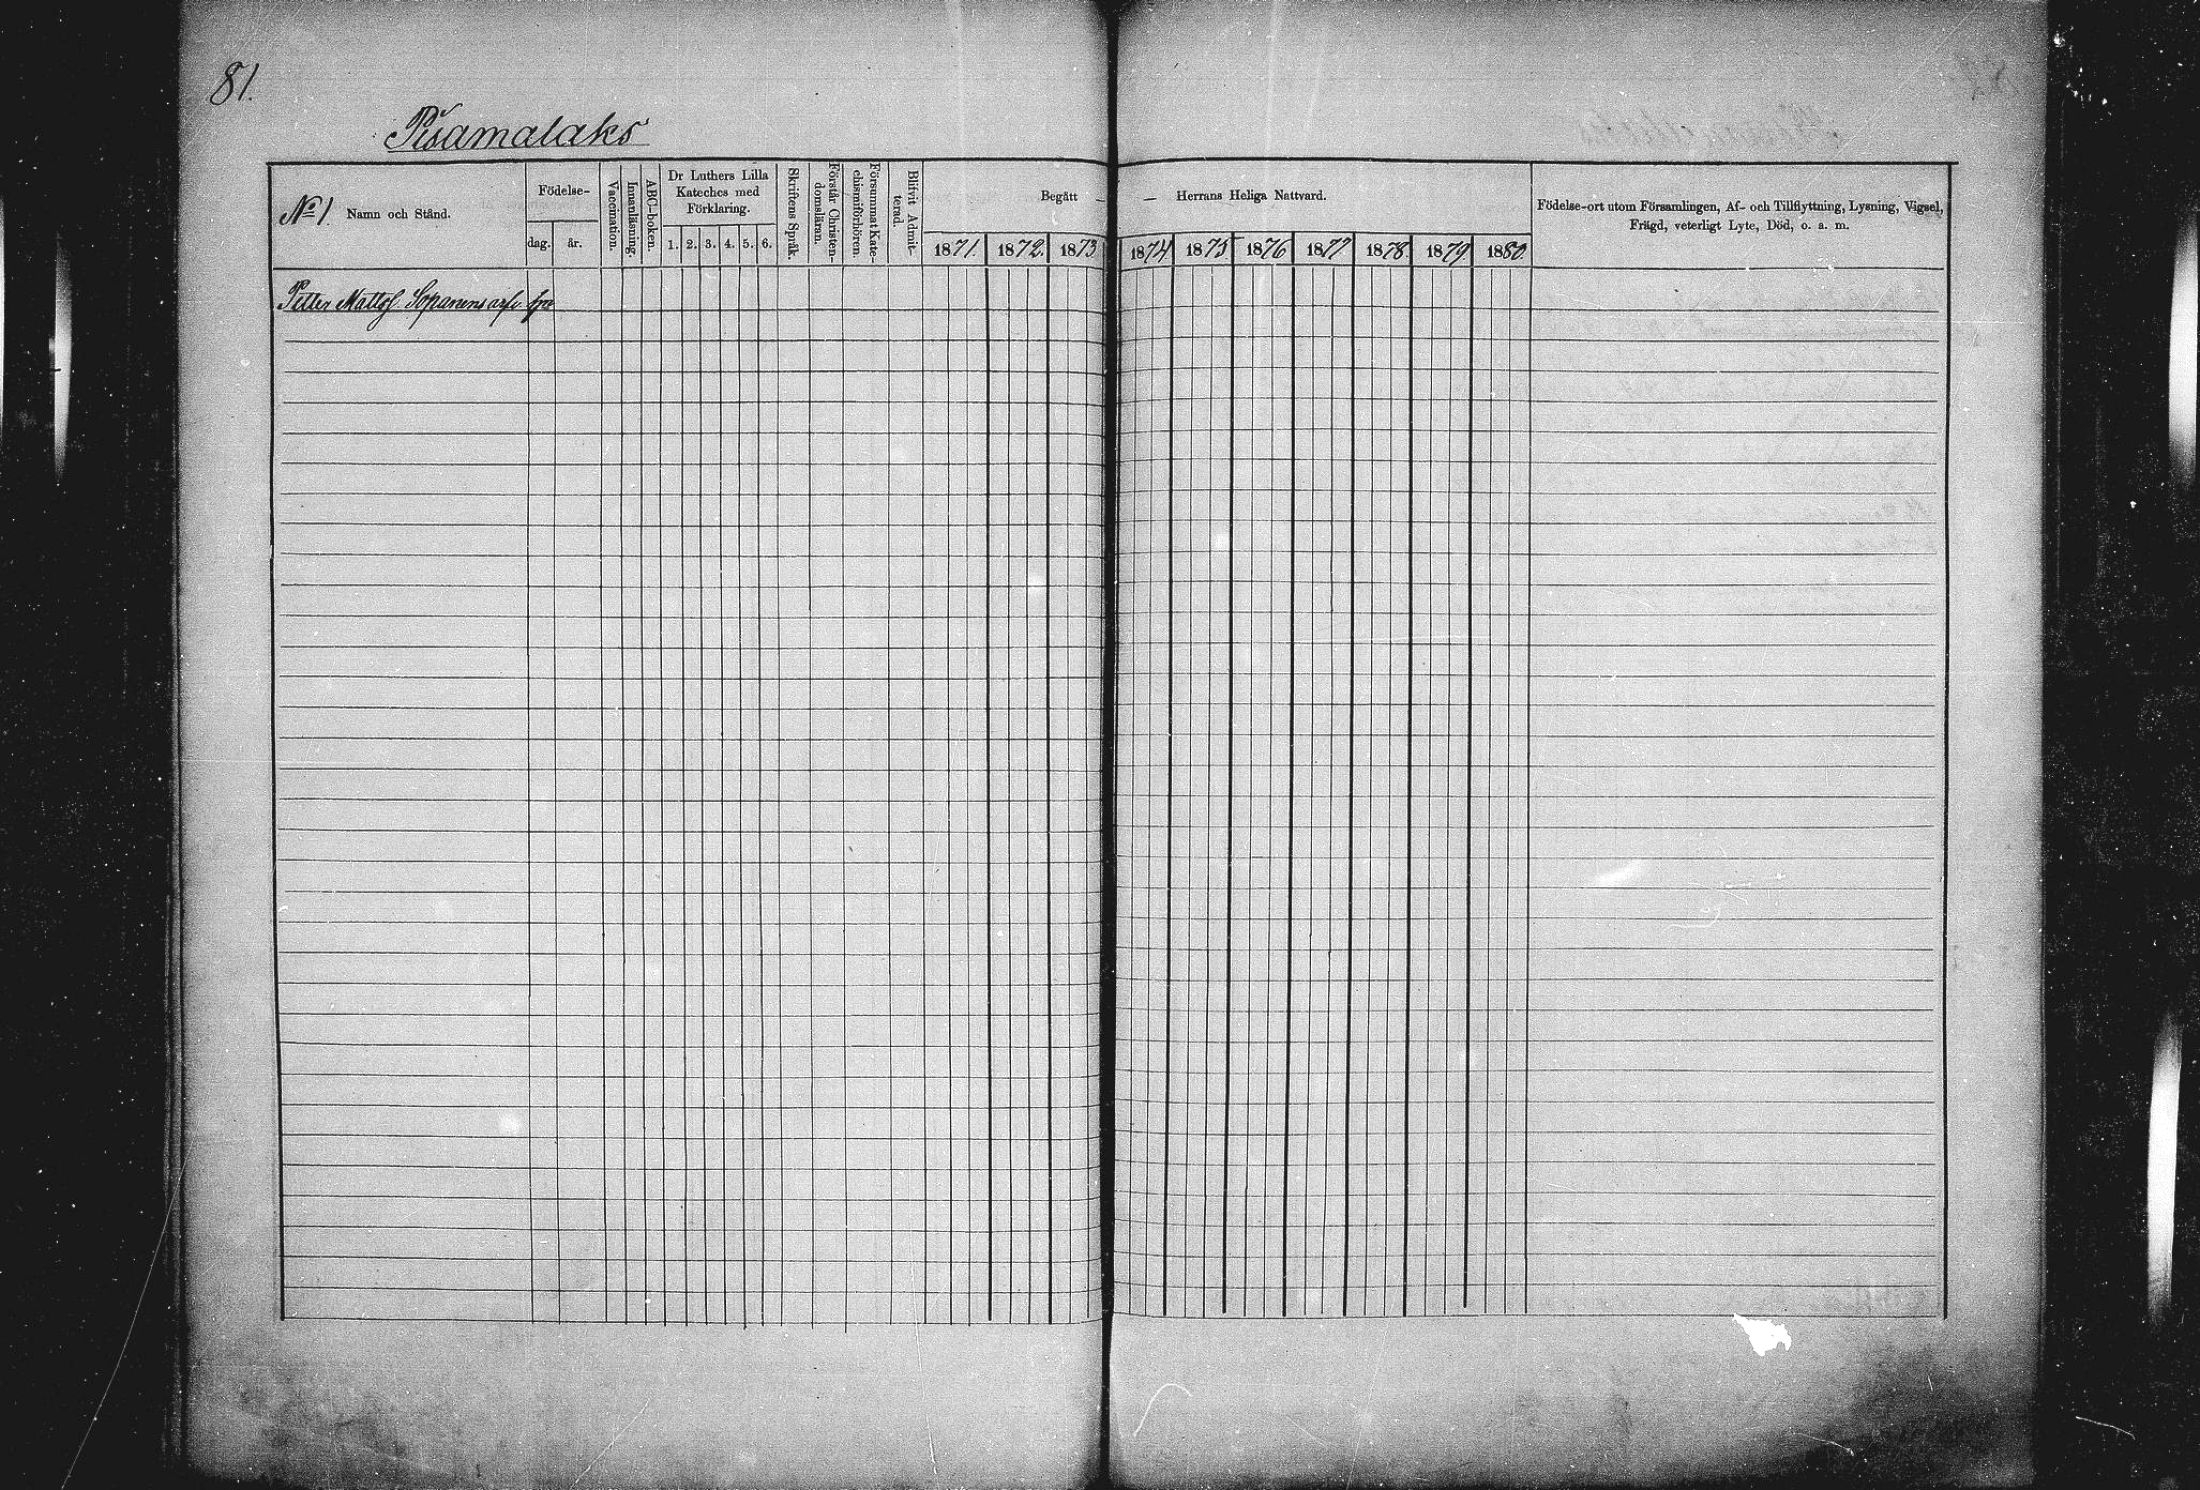 81.
Pisamalaks
No 1. Namn och Stånd.
Födelse-
dag. år.
Vaccination.
Innanläsning.
ABC-boken.
Dr Luthers Lilla
Kateches med
Förklaring.
1. 2. 3. 4. 5. 6.
Skriftens Språk.
Förstår Christen-
domsläran.
Försummat Kate-
chismiförhören.
Blifvit Admit-
terad.
Begått — — Herrans Heliga Nattvard.
1871. 1872. 1873 1874 1875 1876 1877 1878. 1879 1880.
Födelse-ort utom Församlingen, Af- och Tillflyttning, Lysning, Vigsel,
Frägd, veterligt Lyte, Död, o. a. m.
Petter Mattss. Sopanens